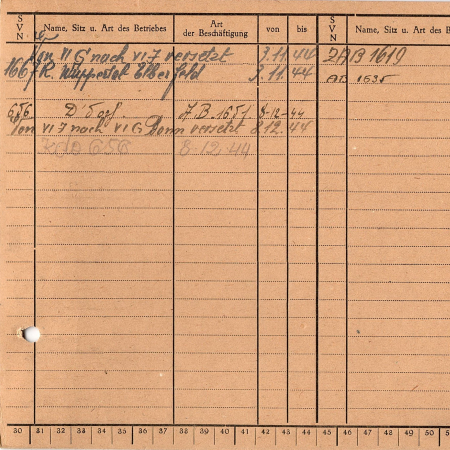 S V N Name, Sitz u. Art des Betriebes Art der Beschäftigung von bis S V N Name, Sitz u. Art des
von VI G nach VI J versetzt 3.11.44 ZAB 1619
166 f R. Wuppertal Elberfeld 3.11.44 AB 1635
656 D'dorf. 8-12-44
Von VI J nach VI G Bonn versetzt 8.12.44
656 8.12.44
30 31 32 33 34 35 36 37 38 39 40 41 42 43 44 45 46 47 48 49 50